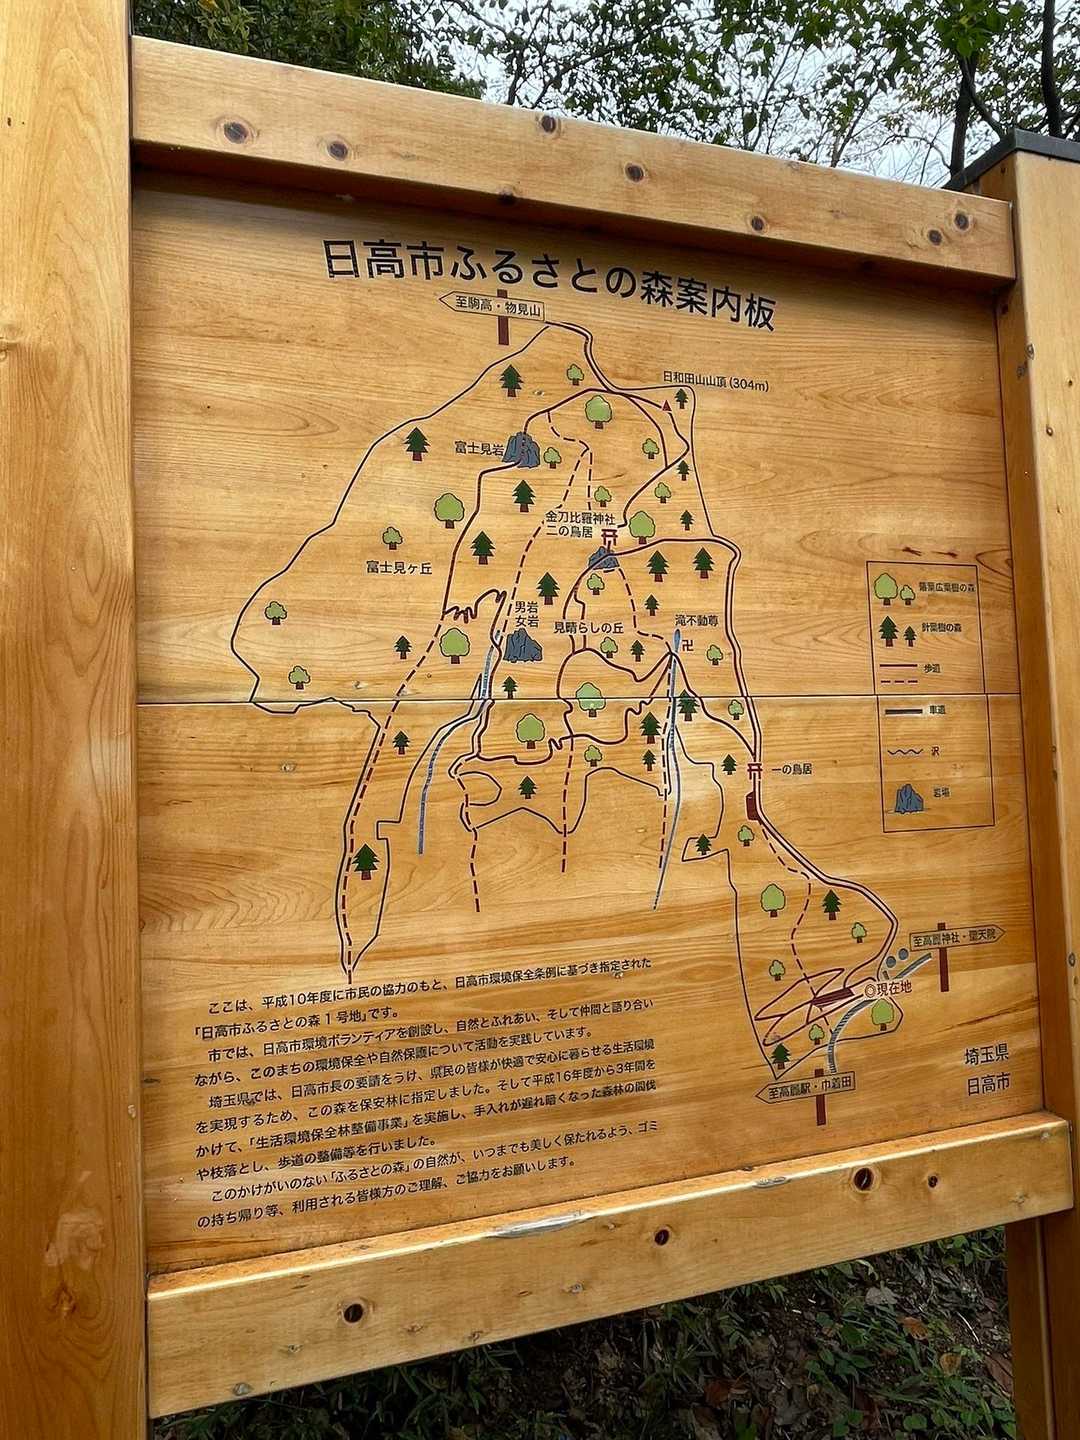 日高市ふるさとの森案内板
至駒高・物見山
日和田山山頂(304m)
富士見岩
金刀比羅神社
二の鳥居
富士見ヶ丘
男岩
女岩
見晴らしの丘
滝不動尊
卍
落葉広葉樹の森
針葉樹の森
歩道
車道
沢
岩場
一の鳥居
至高麗神社・聖天院
◎現在地
至高麗駅・巾着田
埼玉県
日高市
ここは、平成10年度に市民の協力のもと、日高市環境保全条例に基づき指定された
「日高市ふるさとの森1号地」です。
市では、日高市環境ボランティアを創設し、自然とふれあい、そして仲間と語り合い
ながら、このまちの環境保全や自然保護について活動を実践しています。
埼玉県では、日高市長の要請をうけ、県民の皆様が快適で安心に暮らせる生活環境
を実現するため、この森を保安林に指定しました。そして平成16年度から3年間を
かけて、「生活環境保全林整備事業」を実施し、手入れが遅れ暗くなった森林の間伐
や枝落とし、歩道の整備等を行いました。
このかけがいのない「ふるさとの森」の自然が、いつまでも美しく保たれるよう、ゴミ
の持ち帰り等、利用される皆様方のご理解、ご協力をお願いします。